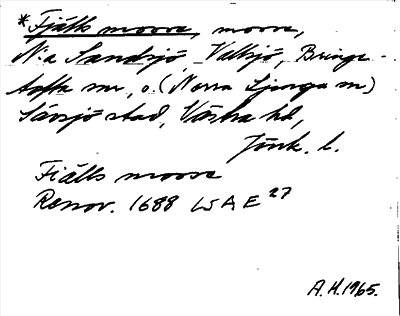 *Fjälls mosse, mosse,
N:a Sandsjö, Vallsjö, Bringe-
tofta snr, o. (Norra Ljunga sn)
Sävsjö stad, Västra hd,
Jönk. l.
Fiälls mosse
Renov. 1688 LSA E 27
A.H. 1965.